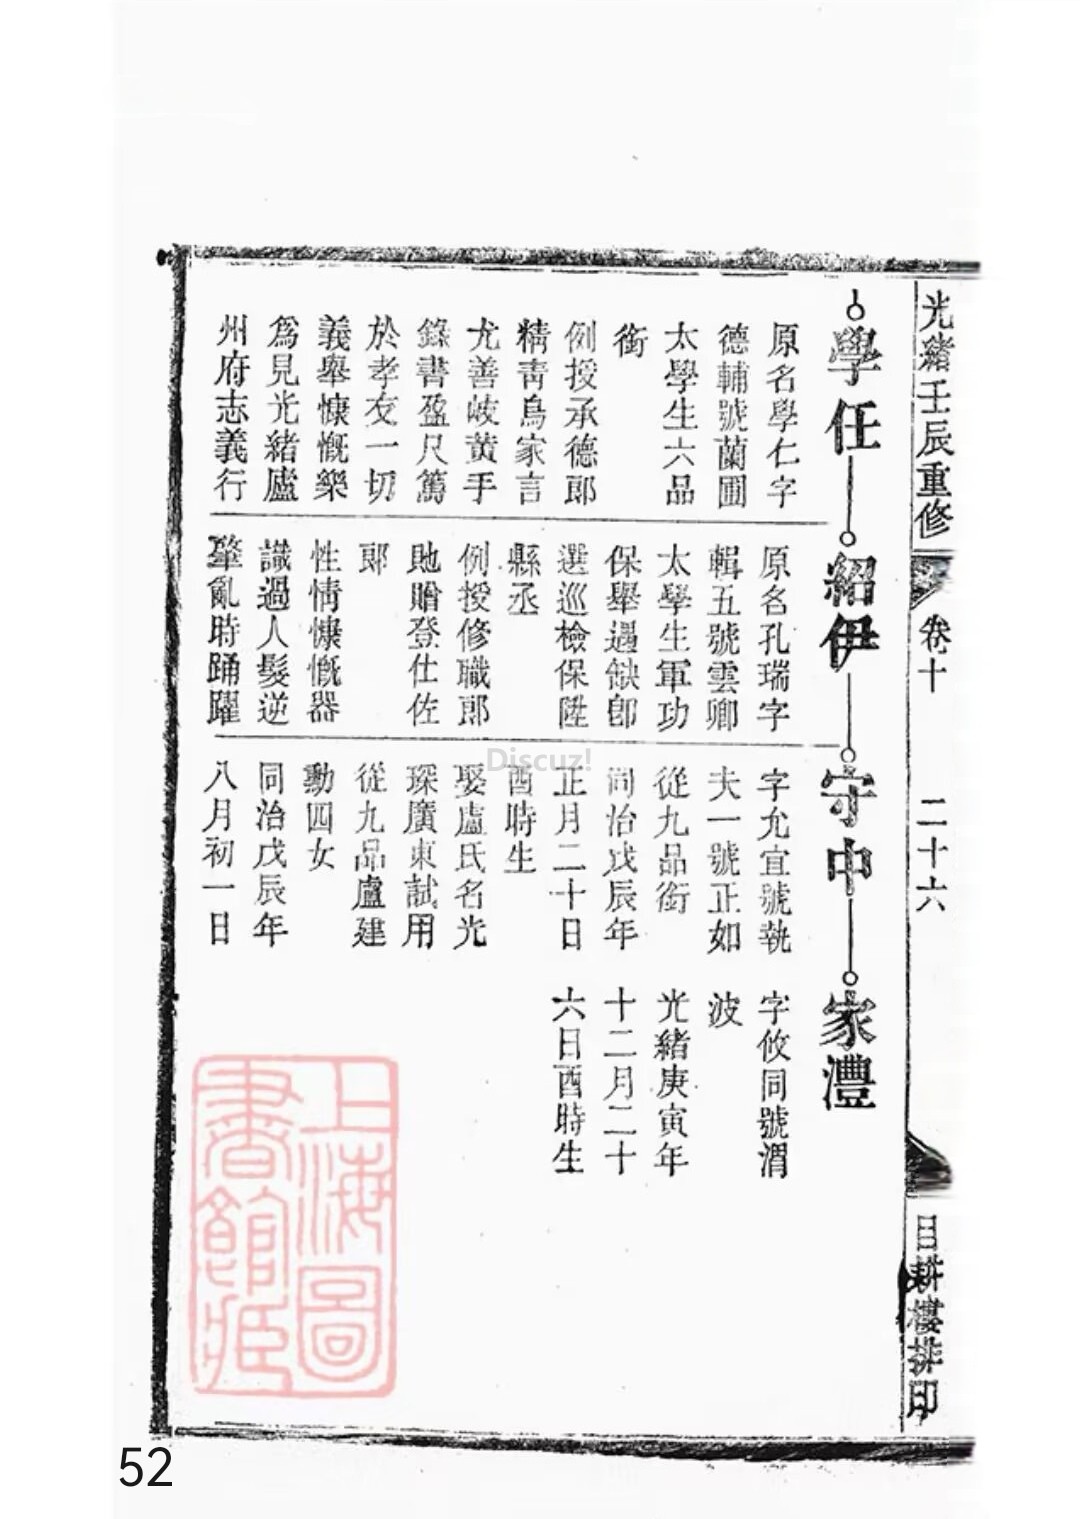 光緒壬辰重修
卷十
二十六
目耕樓排印
學任
原名學仁字
德輔號蘭圃
太學生六品
銜
例授承德郎
精靑烏家言
尤善岐黃手
錄書盈尺篤
於孝友一切
義舉慷慨樂
爲見光緒廬
州府志義行
紹伊
原名孔瑞字
輯五號雲卿
太學生軍功
保舉遇缺卽
選巡檢保陞
縣丞
例授修職郎
貤贈登仕佐
郎
性情慷慨器
識過人髮逆
肇亂時踊躍
守中
字允宜號執
夫一號正如
從九品銜
同治戊辰年
正月二十日
酉時生
娶盧氏名光
琛廣東試用
從九品盧建
勳四女
同治戊辰年
八月初一日
家灃
字攸同號渭
波
光緒庚寅年
十二月二十
六日酉時生
上海圖
書館藏
Discuz!
52